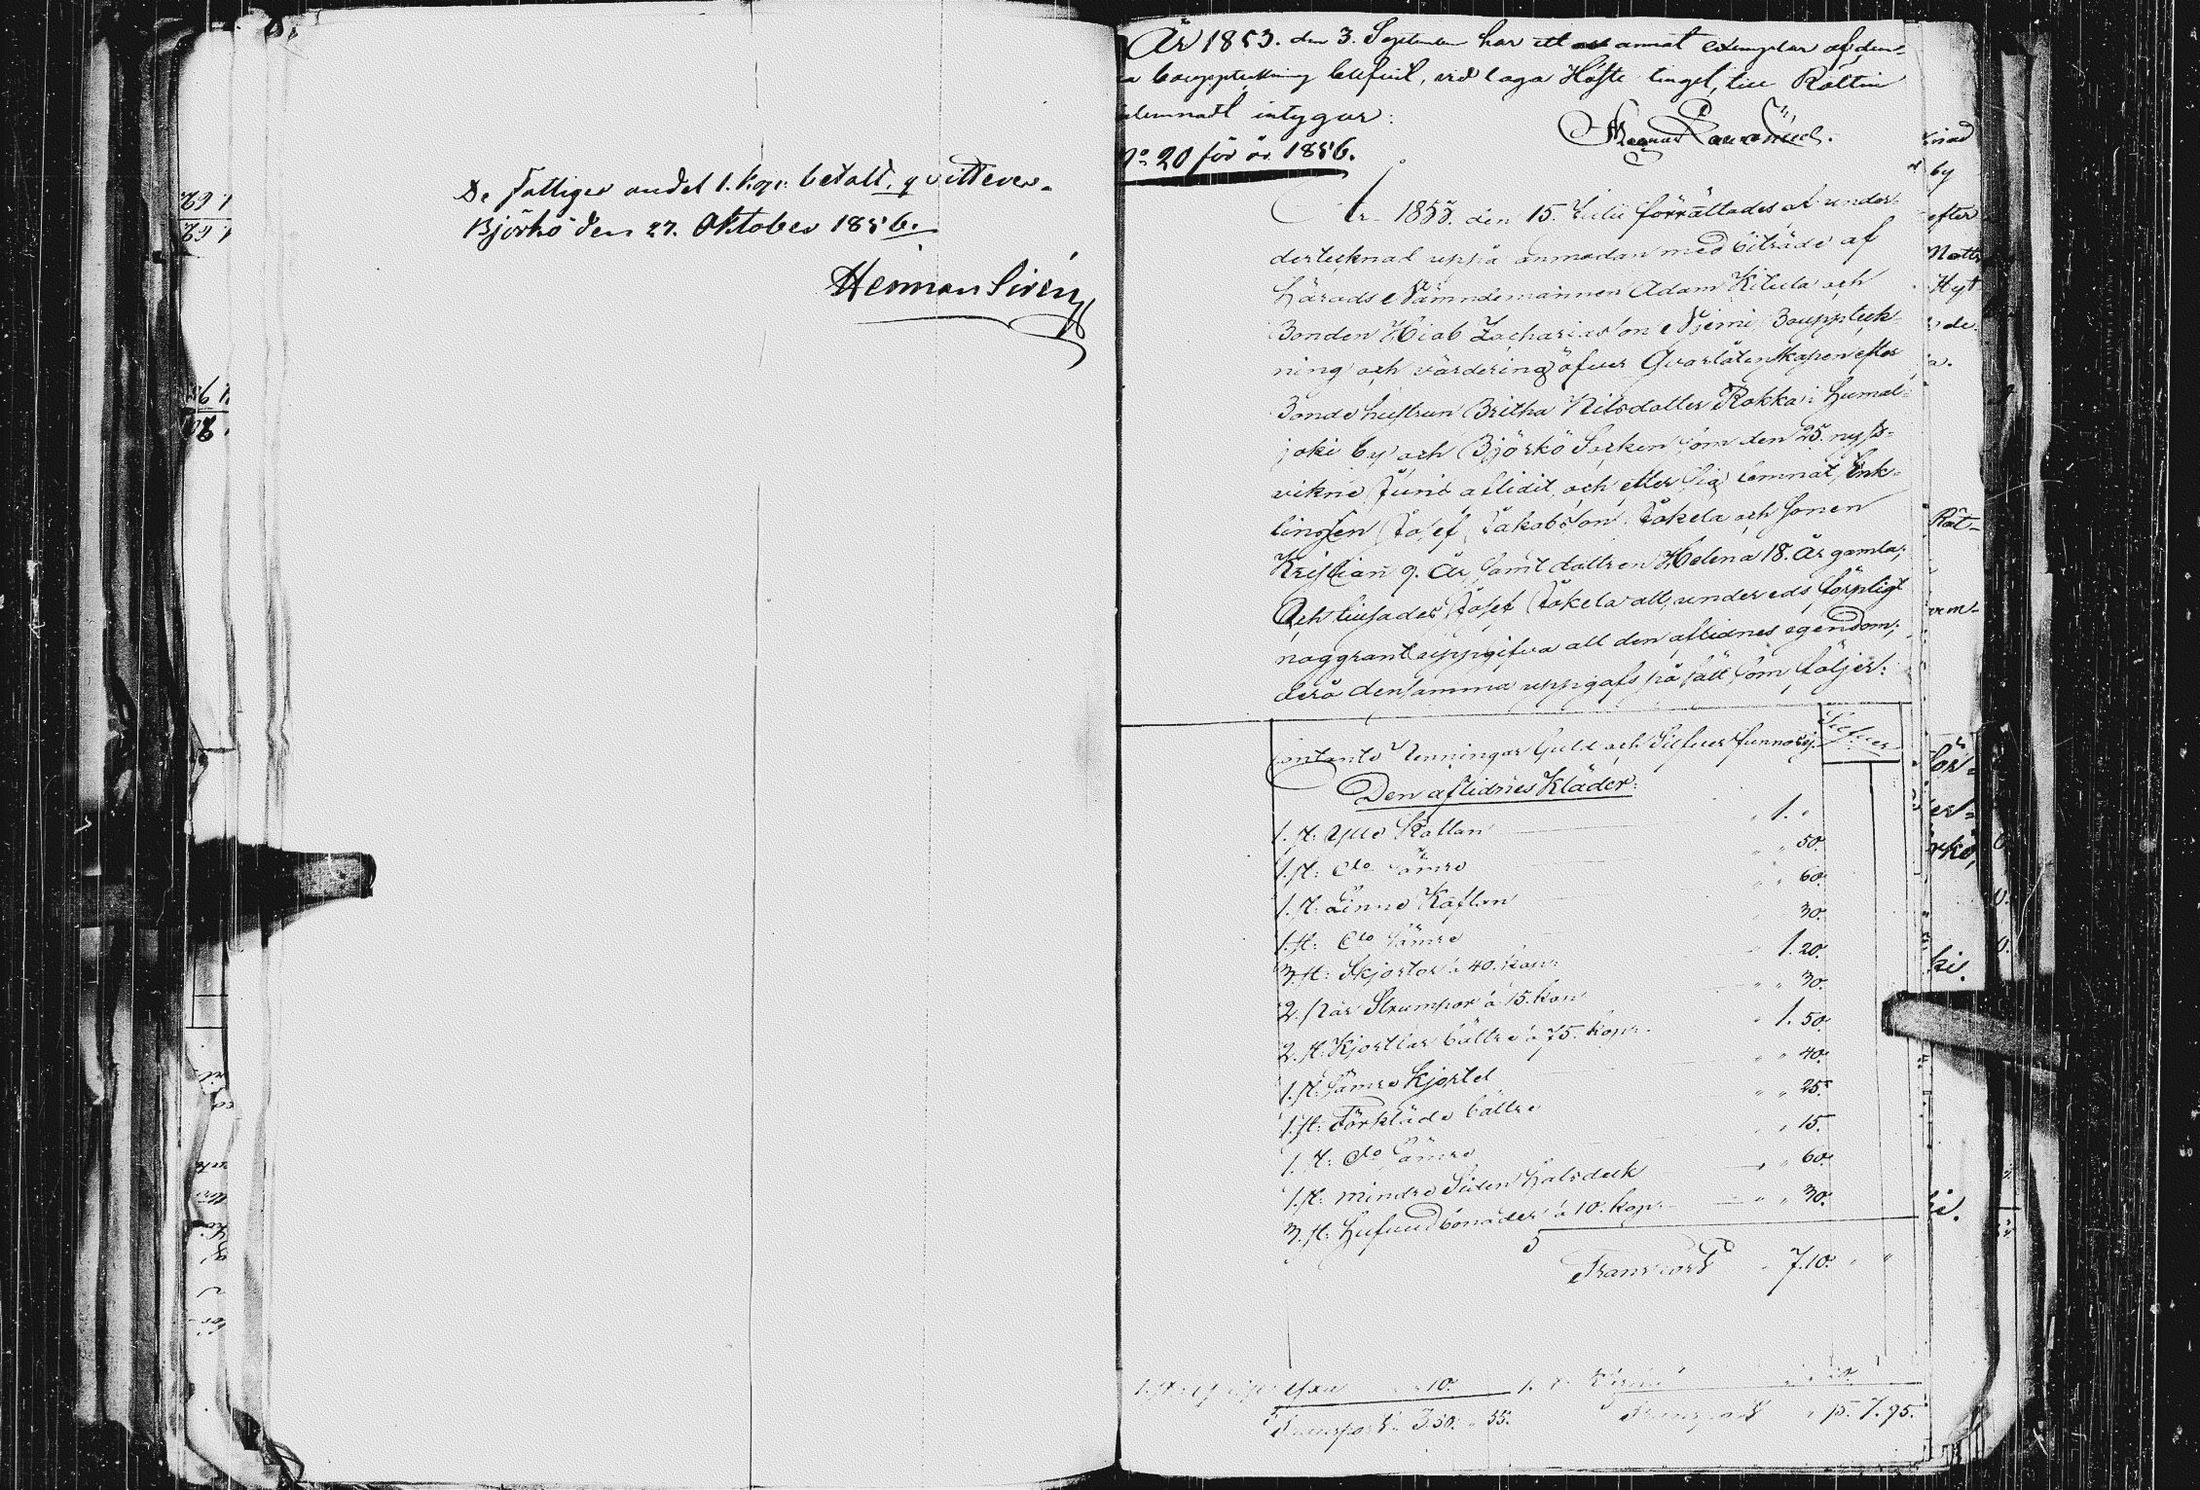 De Fattiges andel 1. kop: betalt, qvitteres.
Björkö den 27. Oktober 1856.
Herman Sirén
År 1853. den 3. September har ett annat exemplar af den-
na bouppteckning blifvit, vid laga Höste tinget, till Rätten
inlemnadt intygar:
No 20 för år 1856.
År 1853. den 15. Julii förrättades af under-
dertecknad uppå anmodan med biträde af
Härads Nämndemannen Adam Kilula och
Bonden Hiob Zachariasson Njemi, Bouppteck-
ning och värdering öfver Qvarlåtenskapen efter
Bondehustrun Britha Nilsdotter Rokka i Humal-
joki by och Björkö Socken som den 25. nyss-
vikne Junii aflidit och efter sig lemnat Enk-
lingen Josef Jakobsson Jokela och Sonen
Kristian 9. År samt dottren Helena 18. År gamla;
Och tillsades Josef Jokela att under eds förpligt
noggrant uppgifva all den aflidnes egendom,
derå densamma uppgafs på sätt som följer:
Silfver
Contante Penningar Guld och Silfver funnos ej.
Den aflidnes Kläder:
1. st: Ylle Kaftan " 1. "
1. st: do sämre " " 50.
1. st: Linne Kaftan " " 60.
1. st: do sämre " " 30.
3. st: Skjortor à 40. kop: " 1. 20.
2. Par Strumpor à 15. kop " " 30.
2. st: Kjortlar bättre à 75. kop: " 1. 50.
1. st: sämre kjortel " " 40.
1. st: Förkläde bättre " " 25.
1. st: do sämre " " 15.
1. st: mindre Siden Halsduk " " 60.
3. st: Hufvudbonader à 10. kop: " " 30.
Transport " 7.10. " "
10.
Transport 3.50. " 55.
Transport " 15. 7.95.